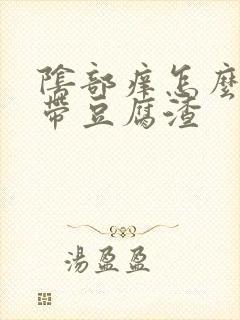 陰部痒怎麼
帶豆腐渣
湯盈盈